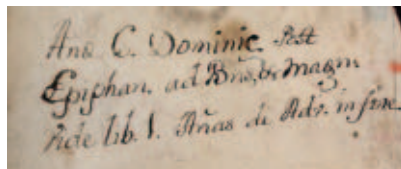 Ano C. Dominic. Post
Epiphan. ad Magn
Vide lib. 1. Añas de Adv. in fine.